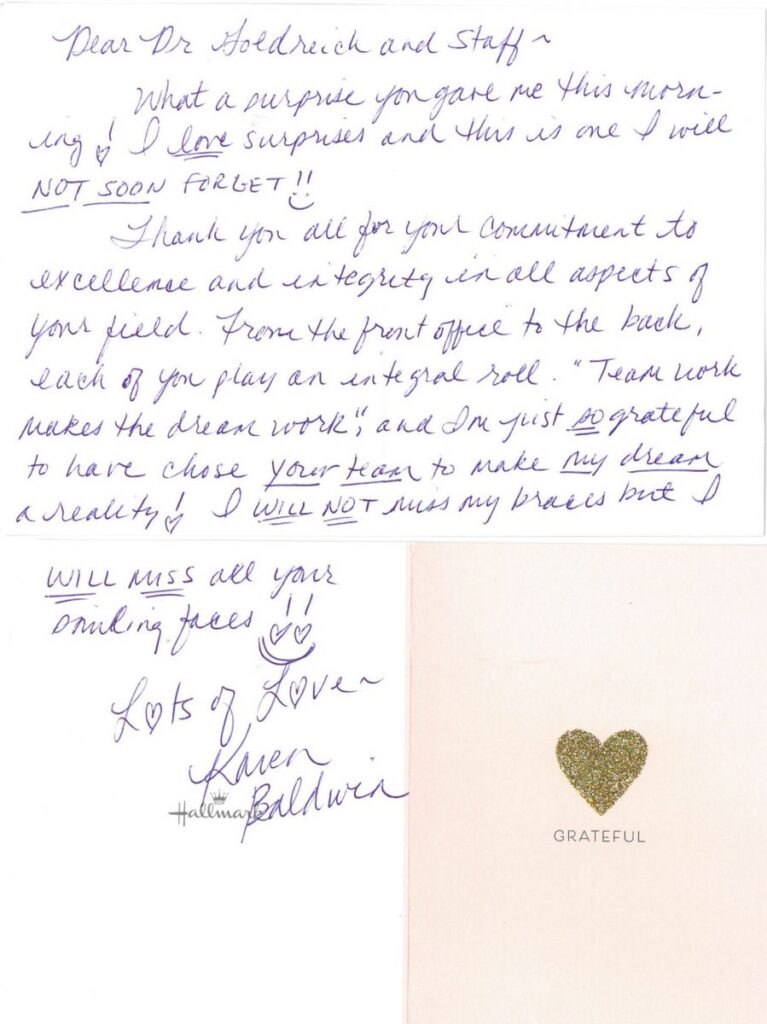 Dear Dr Goldreich and Staff~
What a surprise you gave me this morn-
ing! I love surprises and this is one I will
NOT SOON FORGET!!
Thank you all for your commitment to
excellence and integrity in all aspects of
your field. From the front office to the back,
each of you play an integral roll. "Team work
makes the dream work", and I'm just so grateful
to have chose your team to make my dream
a reality! I WILL NOT miss my braces but I
WILL MISS all your
smiling faces!!
Lots of Love~
Karen
Baldwin
Hallmark
GRATEFUL